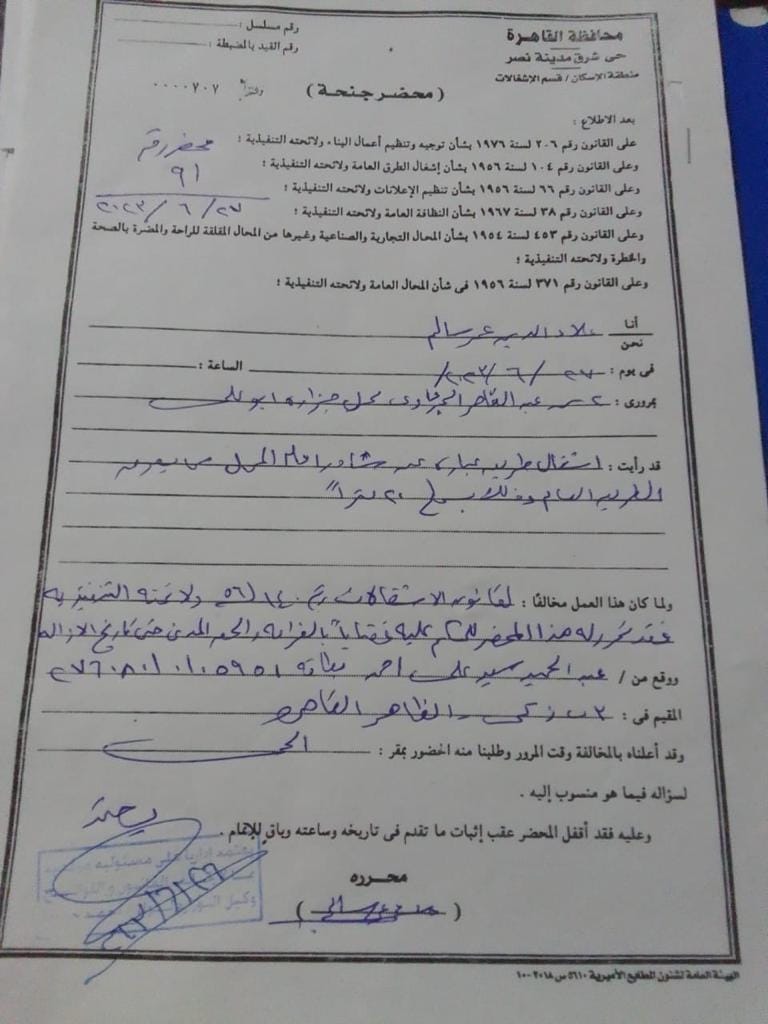 محافظة القاهرة
حى شرق مدينة نصر
منطقة الإسكان / قسم الإشغالات
رقم مسلسل :
رقم القيد بالمضبطة :
( محضر جنحة )
٠٠٠٠٧٠٧
محضر رقم
٩١
٢٧ / ٦ / ٢٠٢٣
بعد الاطلاع :
على القانون رقم ٢٠٦ لسنة ١٩٧٦ بشأن توجيه وتنظيم أعمال البناء ولائحته التنفيذية :
وعلى القانون رقم ١٠٤ لسنة ١٩٥٦ بشأن إشغال الطرق العامة ولائحته التنفيذية :
وعلى القانون رقم ٦٦ لسنة ١٩٥٦ بشأن تنظيم الإعلانات ولائحته التنفيذية :
وعلى القانون رقم ٣٨ لسنة ١٩٦٧ بشأن النظافة العامة ولائحته التنفيذية :
وعلى القانون رقم ٤٥٣ لسنة ١٩٥٤ بشأن المحال التجارية والصناعية وغيرها من المحال المقلقة للراحة والمضرة بالصحة
والخطرة ولائحته التنفيذية :
وعلى القانون رقم ٣٧١ لسنة ١٩٥٦ فى شأن المحال العامة ولائحته التنفيذية :
أنا
نحن علاء الدين عمر سالم
فى يوم : ٢٧ / ٦ / ٢٠٢٣ الساعة :
بمرورى : ٢ ش عبد القاهر الجرجاوى محل جزارة ابو على
قد رأيت : اشغال طريق عبارة عن امام المحل
الطريق العام وذلك ٢٠ مترا"
ولما كان هذا العمل مخالفًا : لقانون الاشغالات رقم ١٤٠ / ٥٦ ولائحته التنفيذية
فقد تحرر له هذا المحضر للحكم عليه بالغرامة والحق المدنى حتى تاريخ الازالة
ووقع من / عبد الحميد سيد على احمد بطاقة
المقيم فى : ٣ ش زكى الظاهر القاهرة
وقد أعلناه بالمخالفة وقت المرور وطلبنا منه الحضور بمقر : الحى
لسؤاله فيما هو منسوب إليه .
وعليه فقد أقفل المحضر عقب إثبات ما تقدم فى تاريخه وساعته وباق للإتمام .
محرره
الهيئة العامة لشئون المطابع الأميرية ٥٦١٠ س ٢٠١٨-١٠٠